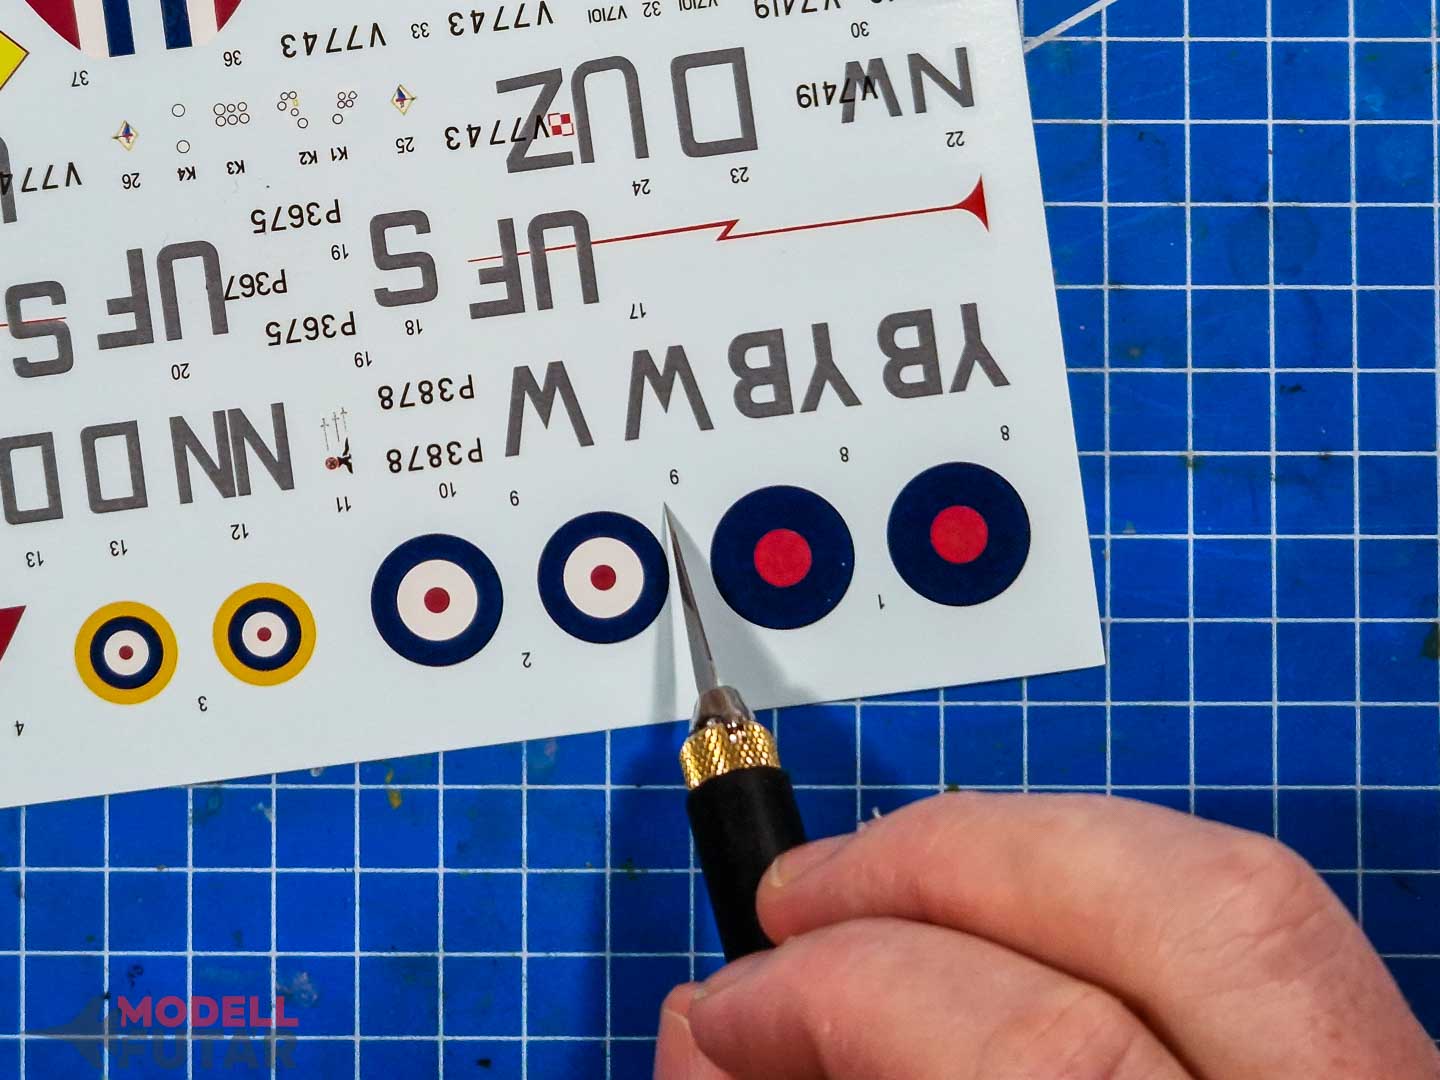 37
36
V7743
33
V7743
V7101
32
V7101
V7419
30
V774
26
K4
K3
K2
K1
25
V7743
UZ
24
D
23
W7419
NW
22
P3675
19
S
18
UF
17
S
UF
20
P367
P3675
19
P3878
W
W
YB
YB
D
D
NN
P3878
11
10
9
9
8
8
13
13
12
4
3
2
1
MODELL
FUTÁR